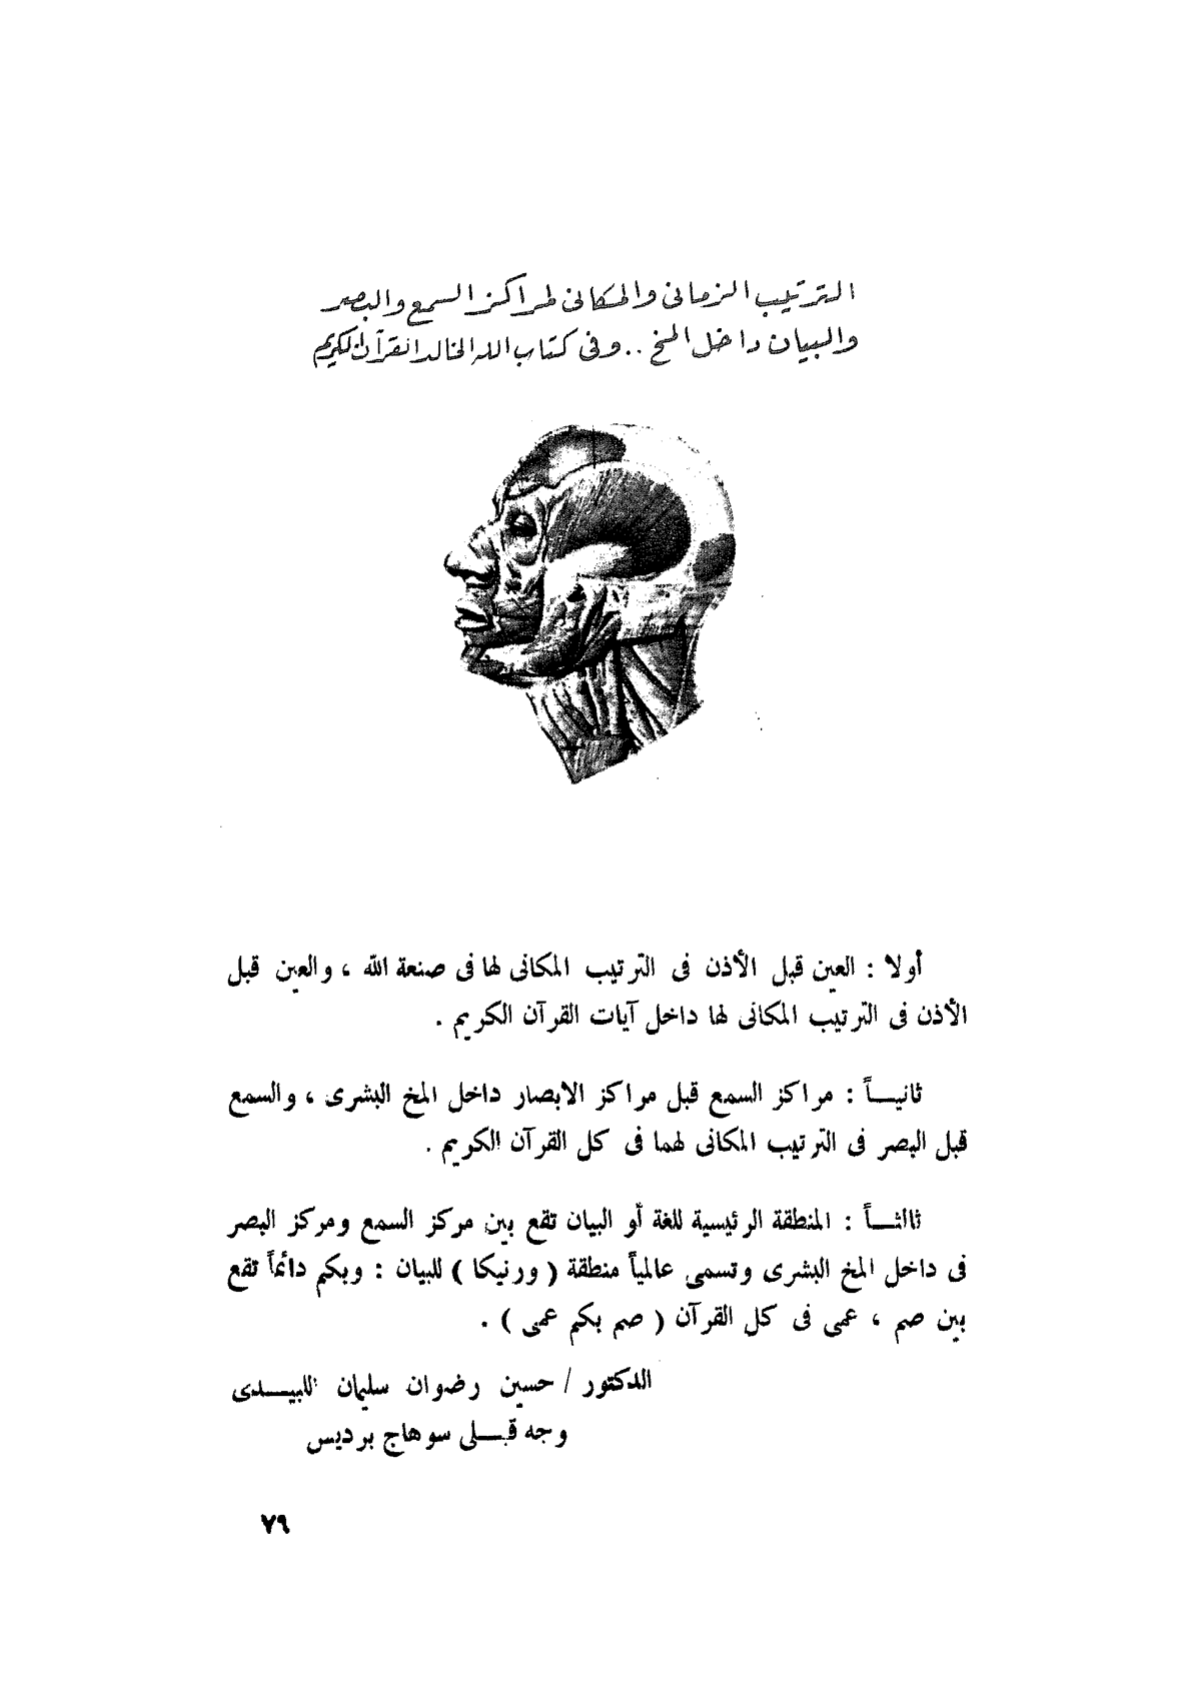 الترتيب الزمانى والمكانى لمراكز السمع والبصر
والبيان داخل المخ .. وفى كتاب الله الخالد القرآن الكريم
أولا : العين قبل الأذن فى الترتيب المكانى لها فى صنعة الله ، والعين قبل
الأذن فى الترتيب المكانى لها داخل آيات القرآن الكريم .
ثانيـــاً : مراكز السمع قبل مراكز الابصار داخل المخ البشرى ، والسمع
قبل البصر فى الترتيب المكانى لهما فى كل القرآن الكريم .
ثالثـــاً : المنطقة الرئيسية للغة أو البيان تقع بين مركز السمع ومركز البصر
فى داخل المخ البشرى وتسمى عالمياً منطقة ( ورنيكا ) للبيان : وبكم دائماً تقع
بين صم ، عمى فى كل القرآن ( صم بكم عمى ) .
الدكتور / حسين رضوان سليمان اللبيـــدى
وجه قبـــلى سوهاج برديس
٧٩